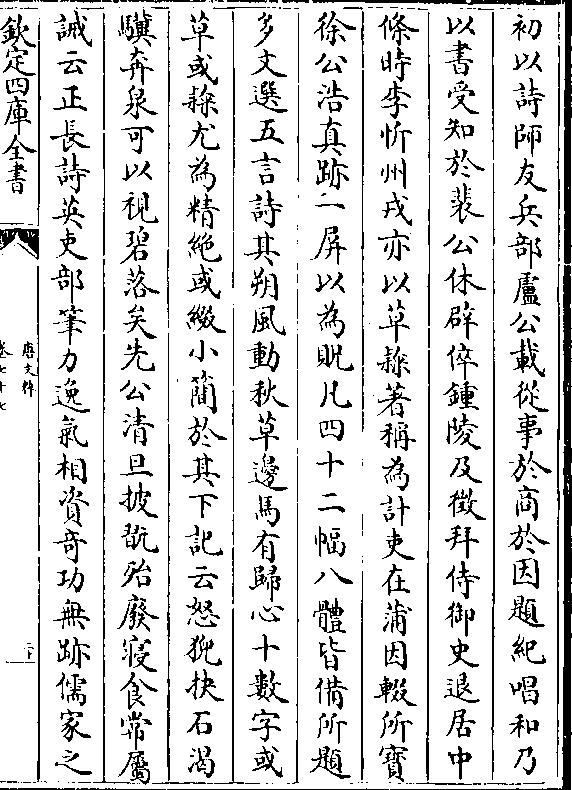 初以詩師友兵部盧公載從事於商於因題紀唱和乃
以書受知於裴公休辟倅鍾陵及徵拜侍御史退居中
條時李忻州戎亦以草𨽻著稱為計吏在蒲因輟所寶
徐公浩真跡一屏以為貺凡四十二幅八體皆備所題
多文選五言詩其朔風動秋草邊馬有歸心十數字或
草或𨽻尤為精絶或綴小簡於其下記云怒猊抉石渴
驥奔泉可以視碧落矣先公清旦披翫殆廢寢食常屬
誡云正長詩英吏部筆力逸氣相資竒功無跡儒家之
欽定四庫全書
唐文粹
卷七十七